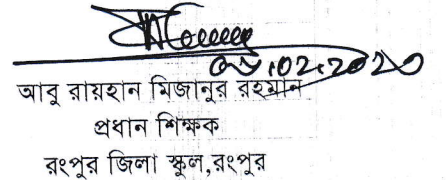 .02.2020
আবু রায়হান মিজানুর রহমান
প্রধান শিক্ষক
রংপুর জিলা স্কুল,রংপুর